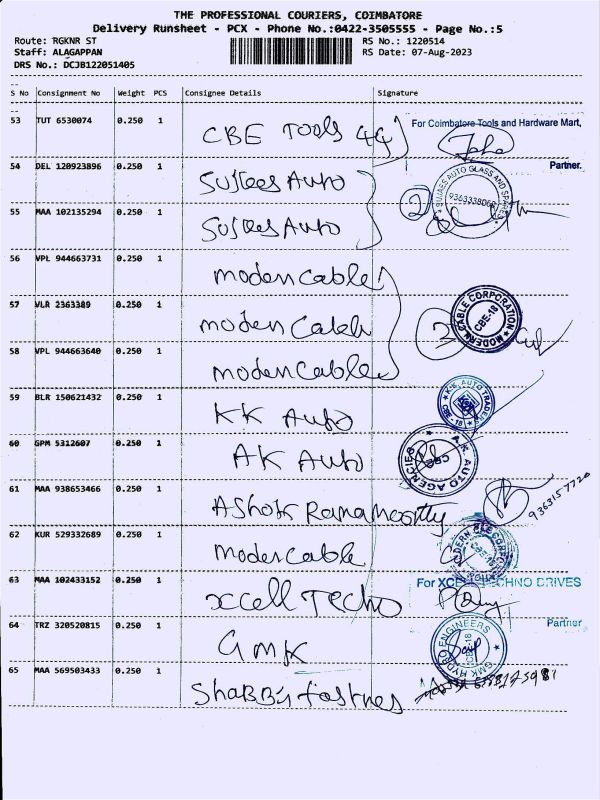 THE PROFESSIONAL COURIERS, COIMBATORE
Delivery Runsheet - PCX - Phone No.:0422-3505555 - Page No.:5
Route: RGKNR ST RS No.: 1220514
Staff: ALAGAPPAN RS Date: 07-Aug-2023
DRS No.: DCJB122051405
S No Consignment No Weight PCS Consignee Details Signature
53 TUT 6530074 0.250 1 CBE Tools For Coimbatore Tools and Hardware Mart,
Partner.
54 DEL 120923896 0.250 1 Sujees Auto SUJAES AUTO GLASS AND SPARES
55 MAA 102135294 0.250 1 Sujees Auto 2
56 VPL 944663731 0.250 1 moden Cable
57 VLR 2363389 0.250 1 moden Cable MODERN CABLE CORPORATION CBE-18
58 VPL 944663640 0.250 1 moden Cable
59 BLR 150621432 0.250 1 KK Auto K.K. AUTO TRADERS CBE - 18
60 GPM 5312607 0.250 1 AK Auto A.K. AUTO AGENCIES CBE
61 MAA 938653466 0.250 1 Ashok Ramamoorthy 9363157720
62 KUR 529332689 0.250 1 moden Cable MODERN CABLE CORPORATION CBE-18
63 MAA 102433152 0.250 1 xcell Techo For XCELL TECHNO DRIVES
Partner
64 TRZ 320520815 0.250 1 GMK GMK HYDRO ENGINEERS CBE-18
65 MAA 569503433 0.250 1 Shabbir fastnes